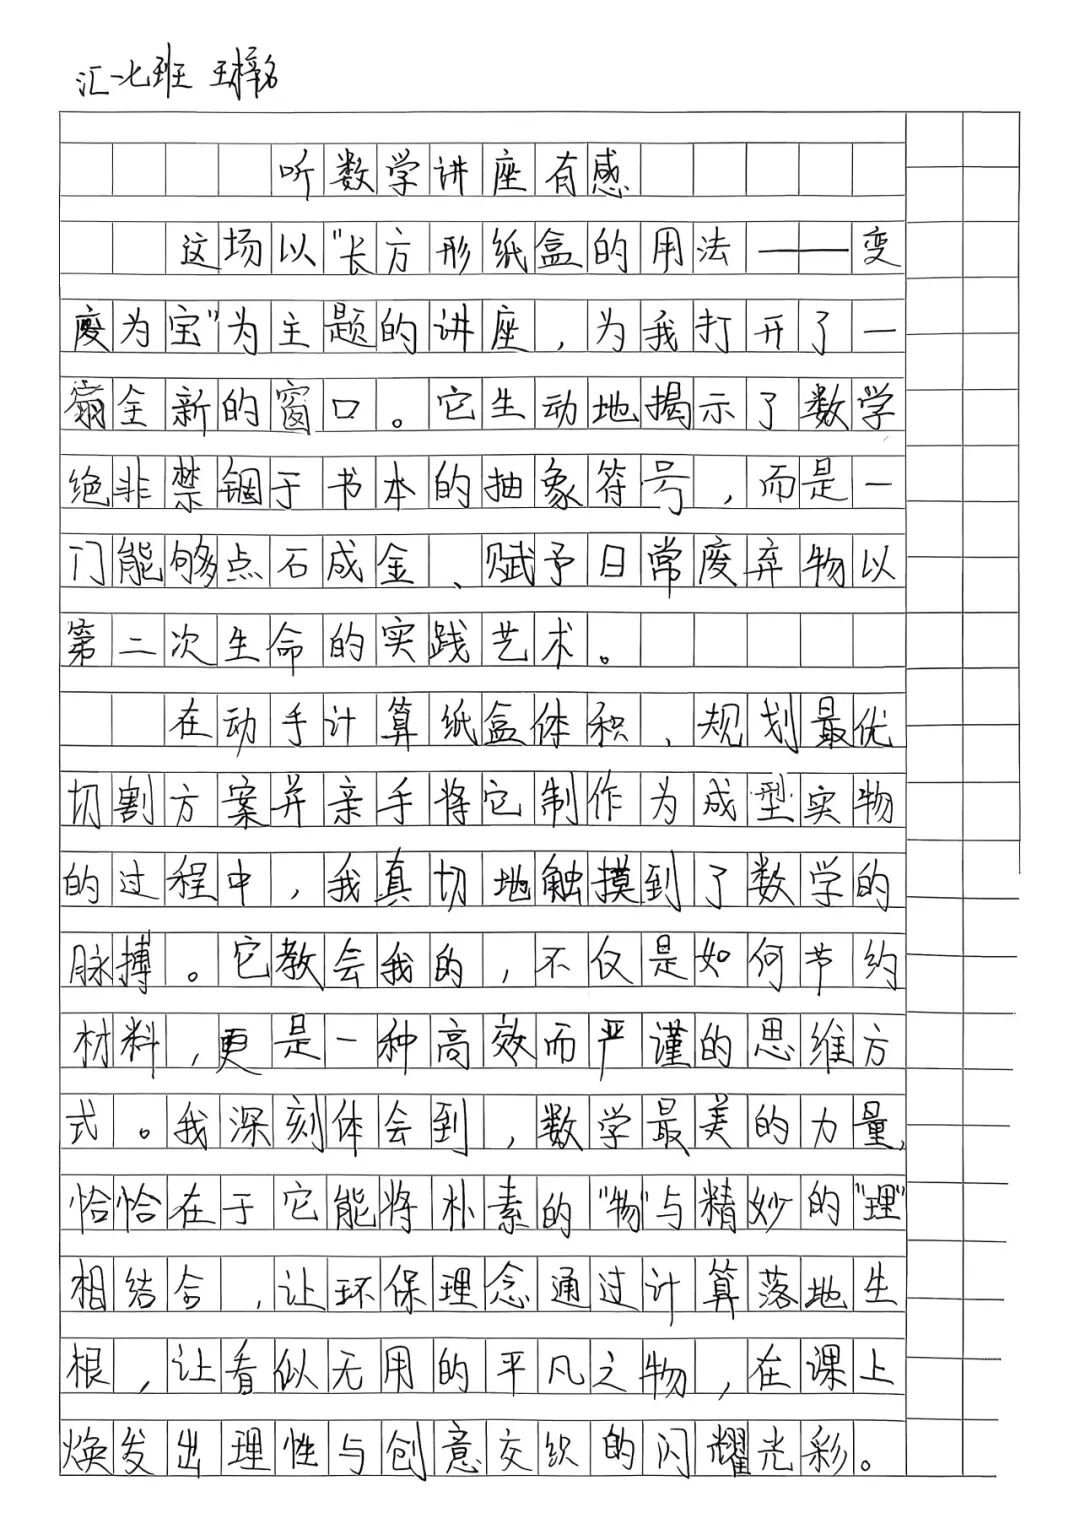 汇一七班 王梓名
听数学讲座有感
这场以"长方形纸盒的用法——变
废为宝"为主题的讲座，为我打开了一
扇全新的窗口。它生动地揭示了数学
绝非禁锢于书本的抽象符号，而是一
门能够点石成金、赋予日常废弃物以
第二次生命的实践艺术。
在动手计算纸盒体积、规划最优
切割方案并亲手将它制作为成型实物
的过程中，我真切地触摸到了数学的
脉搏。它教会我的，不仅是如何节约
材料，更是一种高效而严谨的思维方
式。我深刻体会到，数学最美的力量，
恰恰在于它能将朴素的"物"与精妙的"理"
相结合，让环保理念通过计算落地生
根，让看似无用的平凡之物，在课上
焕发出理性与创意交织的闪耀光彩。